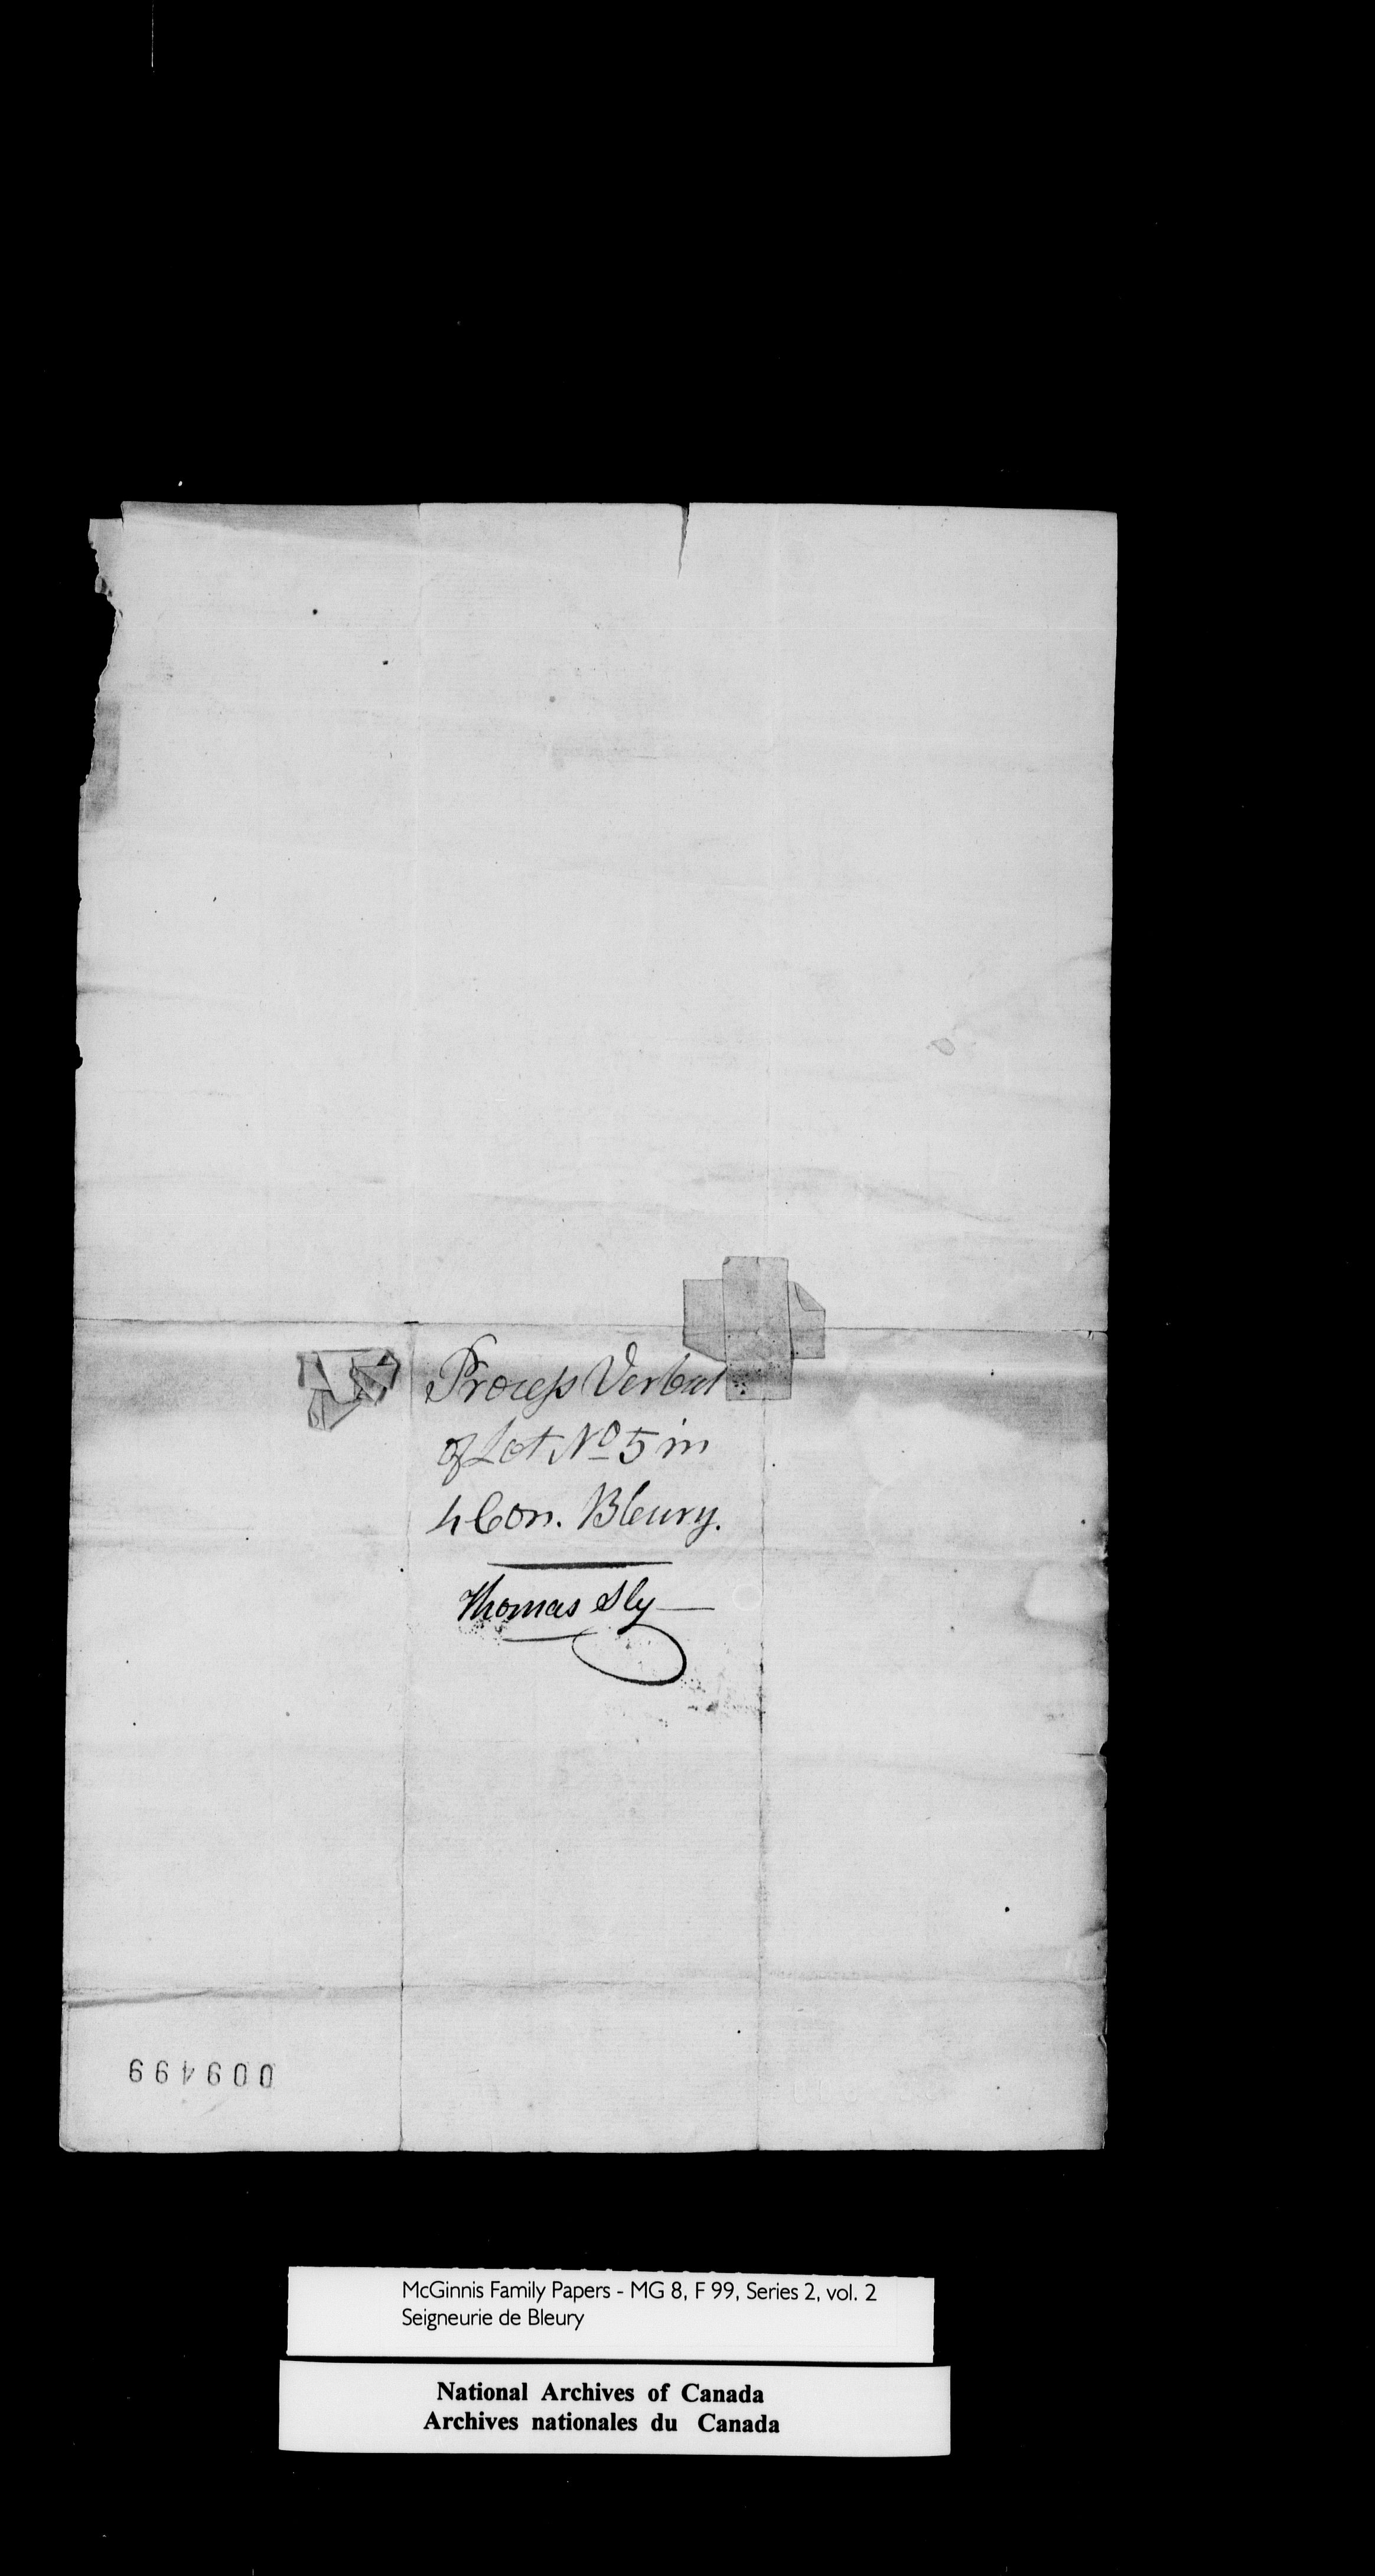 Process Verbal
of Lot No 5 in
4 Con. Bleury.
Thomas Sly
009499
McGinnis Family Papers - MG 8, F 99, Series 2, vol. 2
Seigneurie de Bleury
National Archives of Canada
Archives nationales du Canada